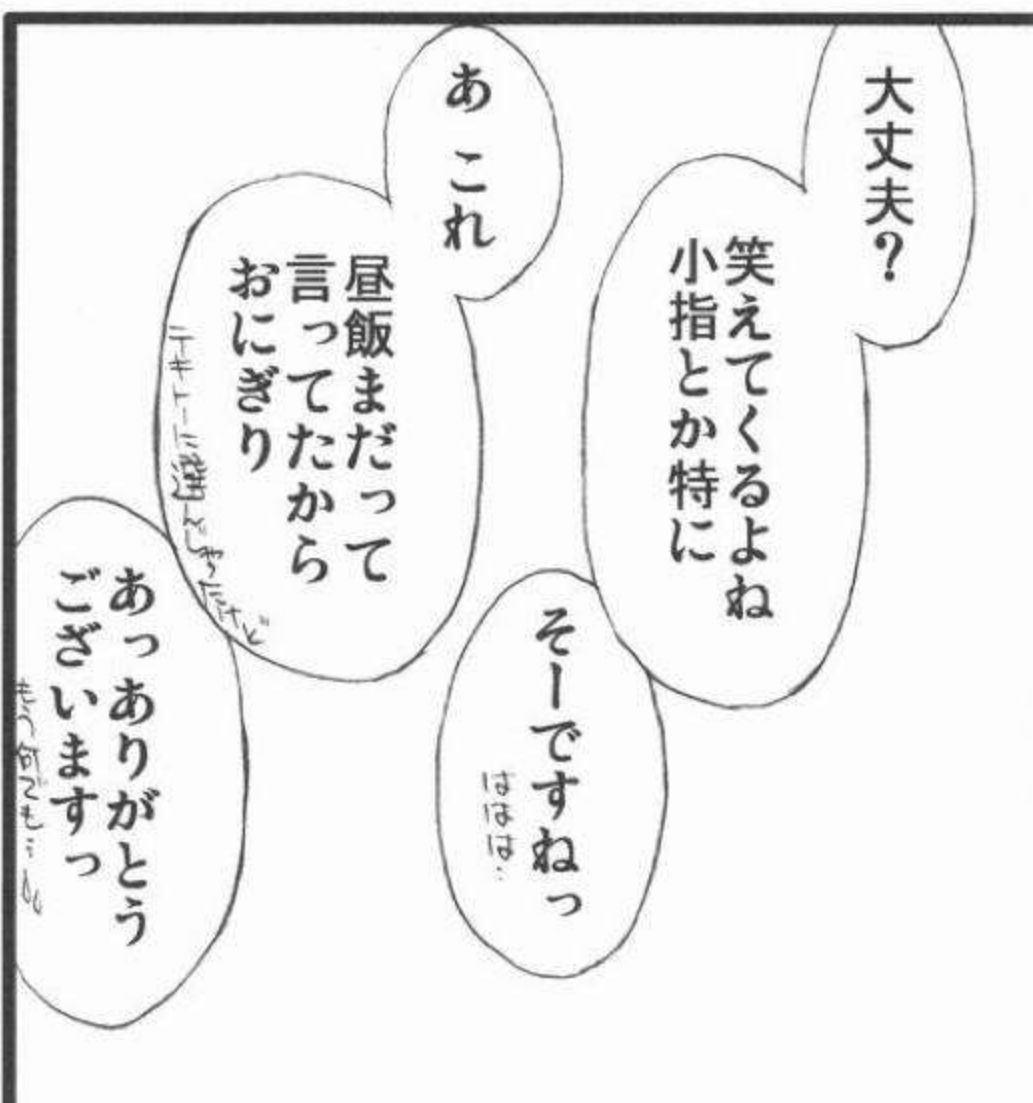 大丈夫?
笑えてくるよね
小指とか特に
そーですねっ
ははは…
あ これ
昼飯まだって
言ってたから
おにぎり
テキトーに選んじゃったけど
あっありがとう
ございますっ
もう何でも…